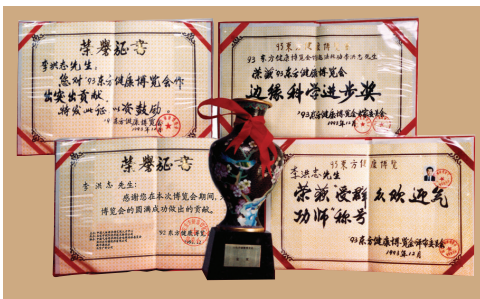 荣誉证书
李洪志先生：
您对'93东方健康博览会作
出突出贡献，
特发此证，以资鼓励。
'93东方健康博览会
1993年12月
'93东方健康博览
'93东方健康博览会的 李洪志先生
荣获'93东方健康博览会
边缘科学进步奖
'93东方健康博览会
1993年12月
荣誉证书
李洪志 先生：
感谢您在本次博览会期间，为
博览会的圆满成功做出的贡献。
'92东方健康博览会
1992.12.
93东方健康博览
李洪志先生
荣获受群众欢迎气
功师"称号
'93东方健康博览会
1993年12月